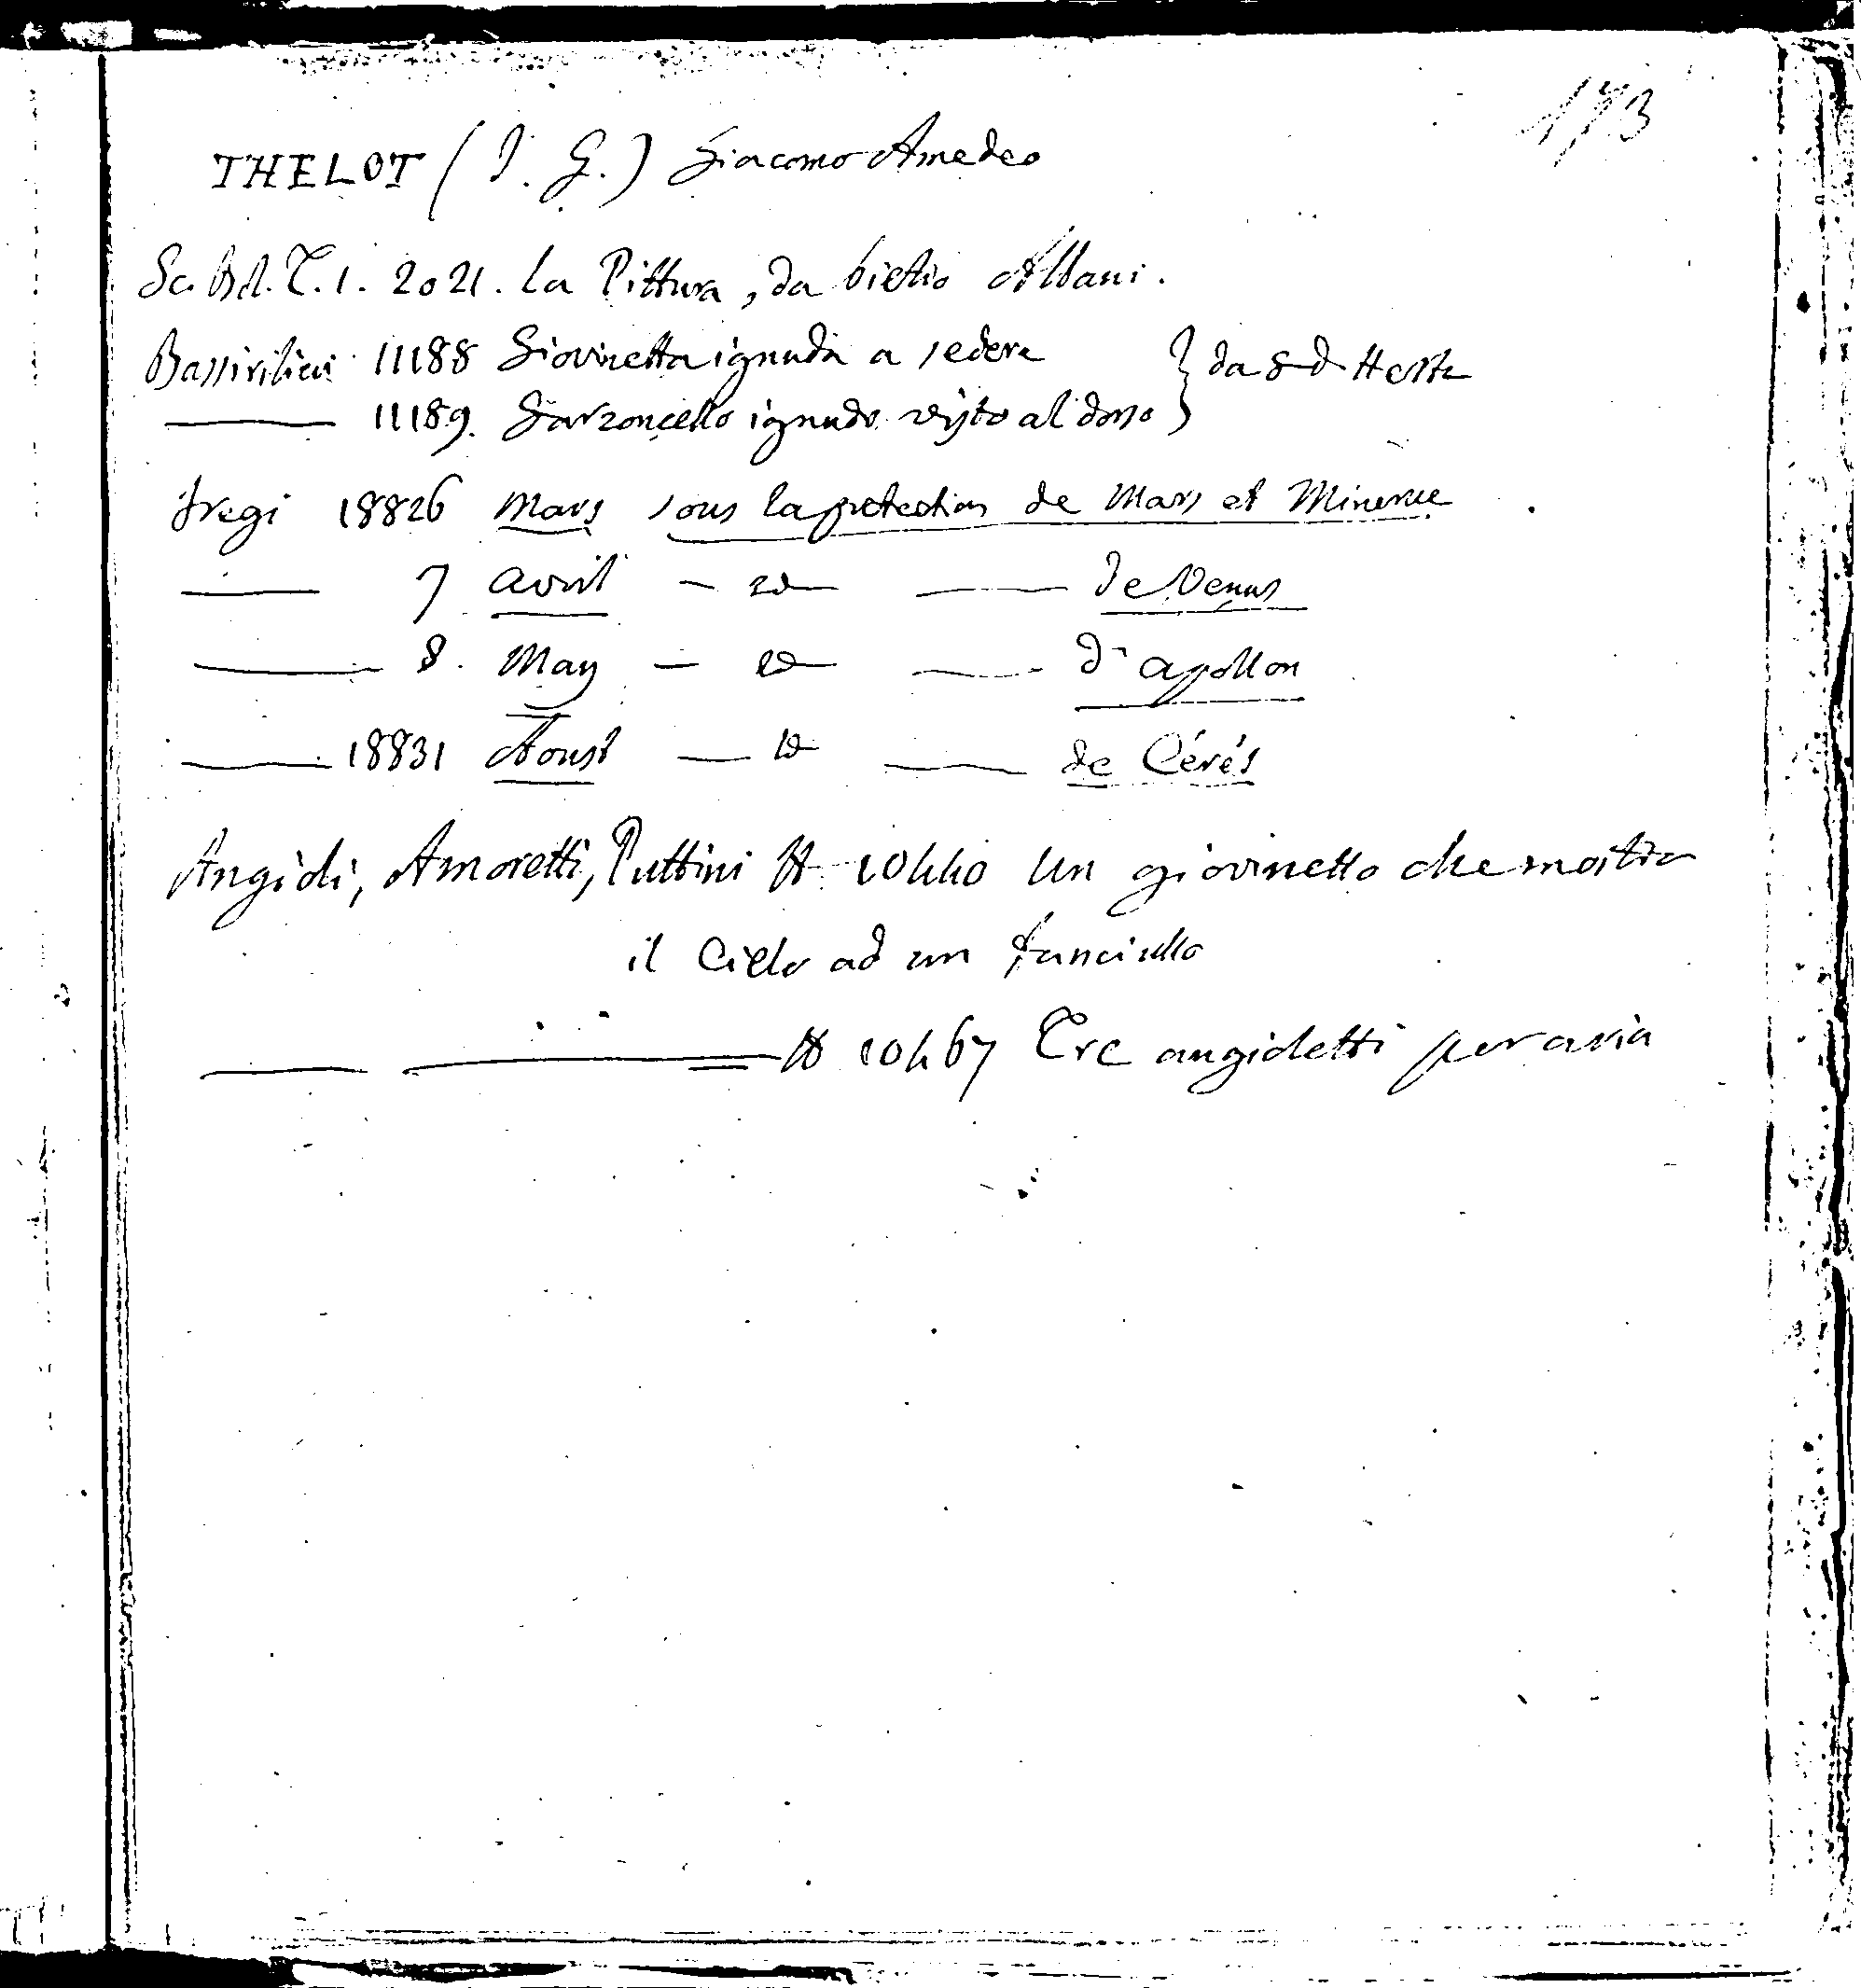 173
THELOT (J. G.) Giacomo Amedeo
Sc. Bol. T. 1. 2021. La Pittura, da Albani.
Bassirilievi 11188 Giovinetta ignuda a sedere } da
——— 11189. Garzoncello ignudo visto al dorso }
Fregi 18826 Mars sous la protection de Mars et Minerve
——— 7 Avril — id — de Venus
——— 8. May — id — d'apollon
——— 18831 Aoust — id — de Cérés
Angioli, Amoretti, Puttini H 10440 Un giovinetto che mostra
il Cielo ad un fanciullo
——— ——— H 10467 Tre angioletti per aria